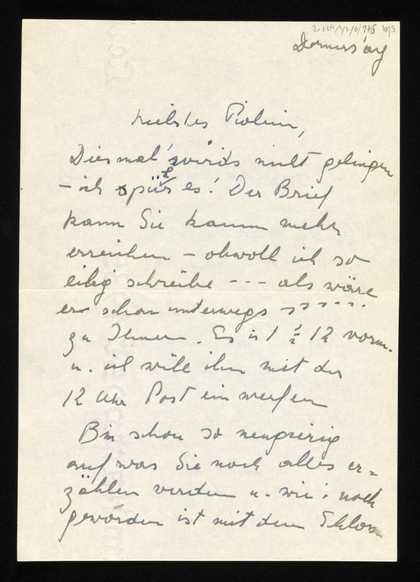 Donnerstag
Liebstes Violin,
Diesmal wird's nicht gelingen
– ich spür es! Der Brief
kann Sie kaum mehr
erreichen – obwoll ich so
eilig schreibe --- als wäre
er schon unterwegs -----
zu Ihnen. Es ist ½ 12 vorm.
u. ich will ihn mit der
12 Uhr Post einwerfen
Bin schon so neugierig
auf was Sie noch alles er=
zählen werden u. wie's noch
geworden ist mit dem